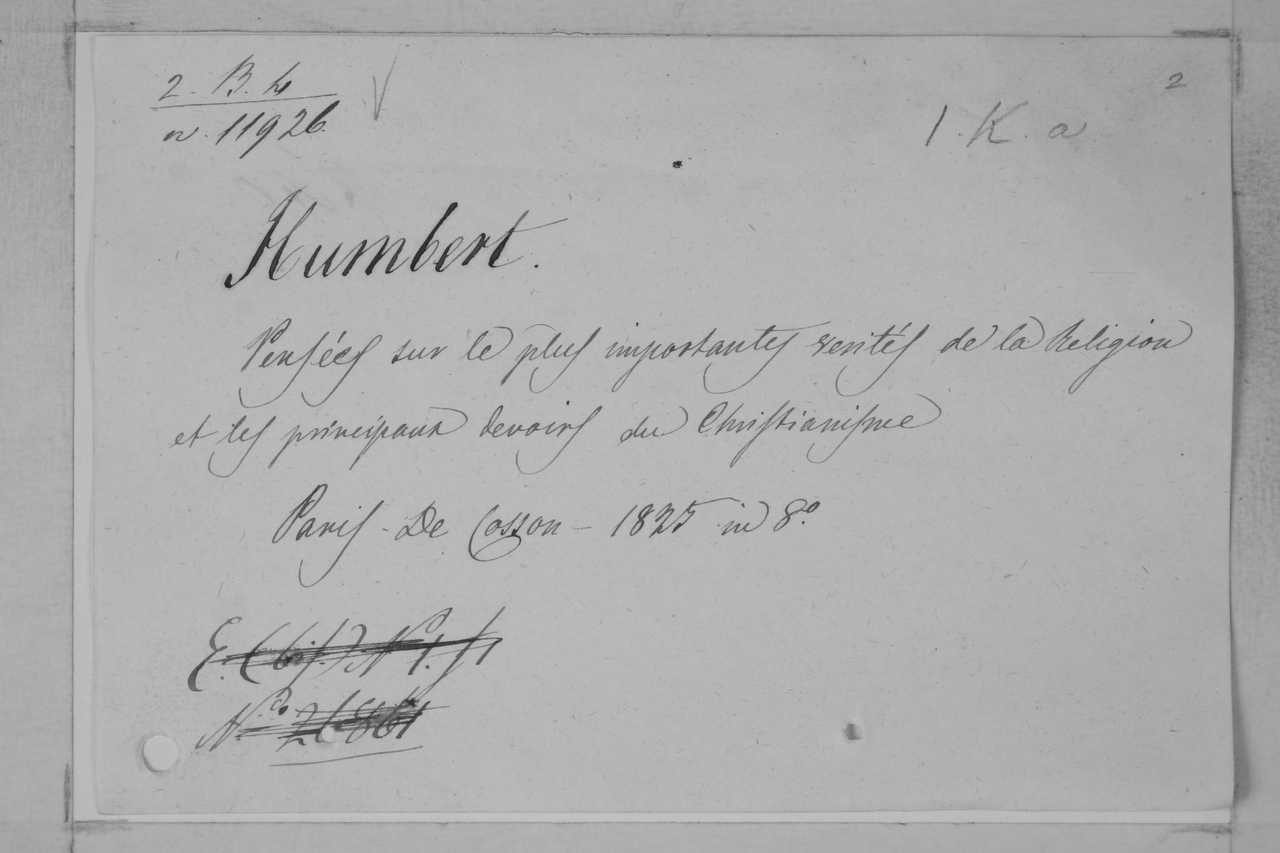 2. B. 4
n. 11926.
2
1. K. a
Humbert.
Pensées sur le plus importantes verités de la Religion
et les principaux devoirs du Christianisme
Paris - De Cosson - 1825 in 8.º
E. (bis) N.º 1.
N.º